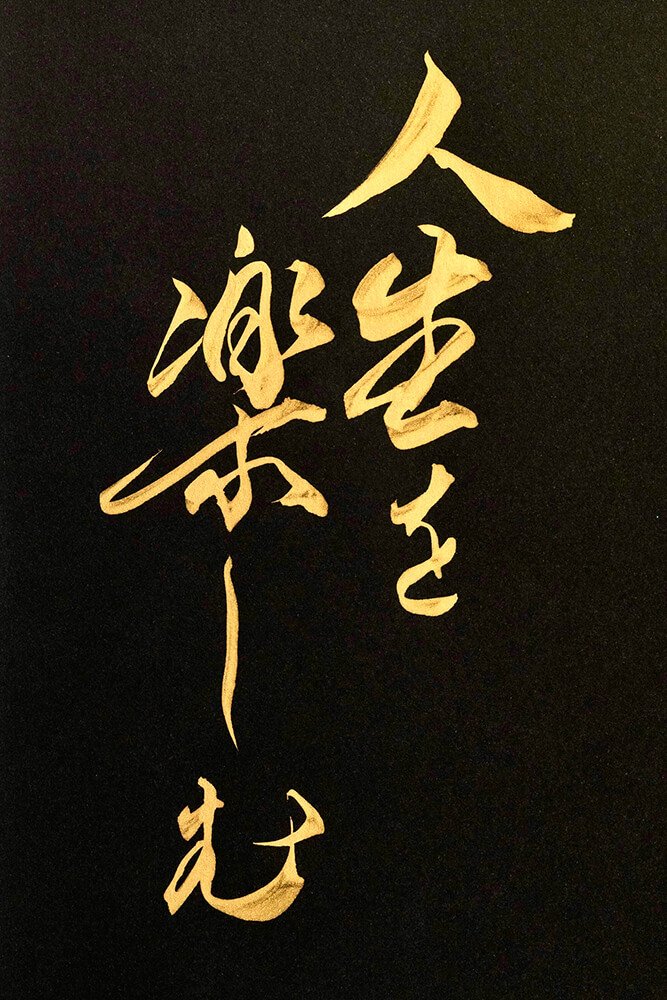 人生を
楽しむ